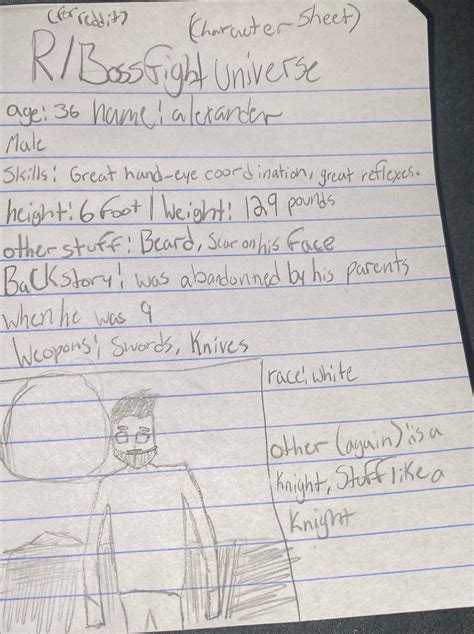 (for reddit)
(Character Sheet)
R/BossFight Universe
age: 36 name: alexander
Male
Skills: Great hand-eye coordination, great reflexes.
height: 6 foot | Weight: 129 pounds
other stuff: Beard, Scar on his Face
BaCKstory: was abandonned by his parents
when he was 9
Weopons: Swords, Knives
race: white
other (again): is a
Knight, Stuff like a
Knight